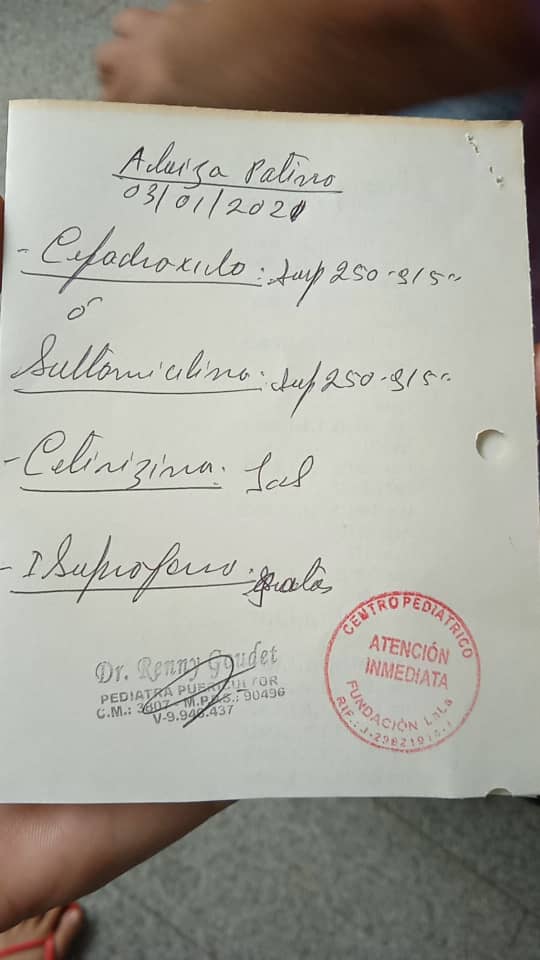 Aduiza Patino
03/01/2021
- Cefadroxilo: Susp 250mg/5cc
ó
Sultamicilina: Susp 250mg/5cc
- Cetirizina: Jab
- Ibuprofeno: gotas
Dr. Renny Goudet
PEDIATRA PUERICULTOR
C.M.: 3607 - M.P.P.S.: 90496
V-9.946.437
CENTRO PEDIATRICO
ATENCIÓN
INMEDIATA
FUNDACIÓN LaLa
RIF.: J-29821914-1